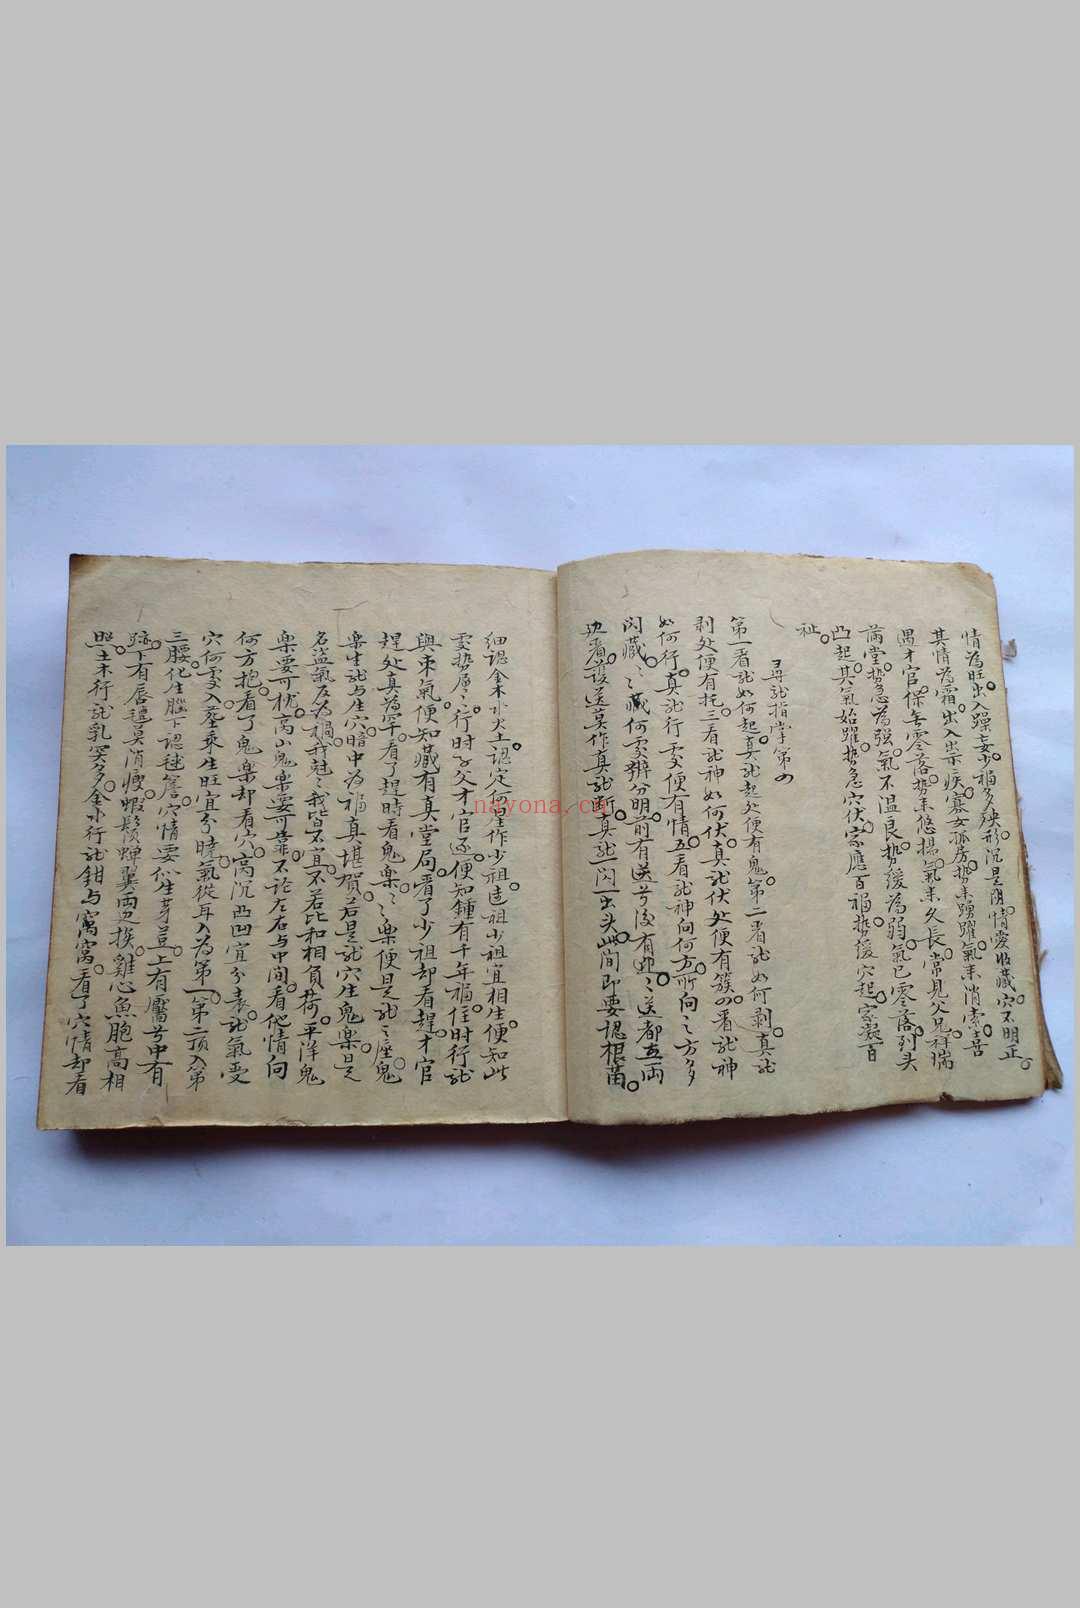 情為旺出入躁妄少福多殃形沉是陰情愛收藏穴不明正
其情為霜出入出示疾寡女孤房势来踴躍氣来消索士喜
遇才官保無零落势来悠揚氣来久長常見父兄祥瑞
满堂势急為强氣不温良势緩為弱氣已零落到头
凸起其氣始躍势急穴伏家應百福势緩穴起家凝百
祉
尋龙指掌第四
第一看龙如何起真龙起处便有鬼第二看龙如何剥真龙
剥处便有托三看龙神如何伏真龙伏处便有簇四看龙神
如何行真龙行处便有情五看龙神向何方所向〻方多
闪藏〻藏何處辨分明前有送兮後有迎〻送都在两
边看護送莫作真龙断真龙一闪一出头此间即要認根苗
细認金木水火土認定何星作少祖造祖少祖宜相生便知此
處势居〻行时子父才官逐便知鍾有千年福住时行龙
與束氣便知藏有真堂局看了少祖却看趕才官
趕处真為罕看了趕時看鬼樂〻樂便是龙〻座鬼
樂生龙与座穴暗中為福真堪賀若是龙穴生鬼樂是
名盗氣反為禍我尅〻我皆不宜不若比和相負荷平洋鬼
樂要可枕高山鬼樂要可靠不论左右与中间看他情向
何方抱看了鬼樂却看穴高沉凸凹宜分表龙氣受
穴何處入葬乘生旺宜分曉氣從耳入為第一第二頂入第
三腰化生腦下認毬簷穴情要似生芽荳上有靨兮中有
跡下有唇毡莫消瘦蝦鬚蟬翼两边挨雞心魚胞高相
照土木行龙乳突多金水行龙鉗与窩窩看了穴情却看
nayona.cn